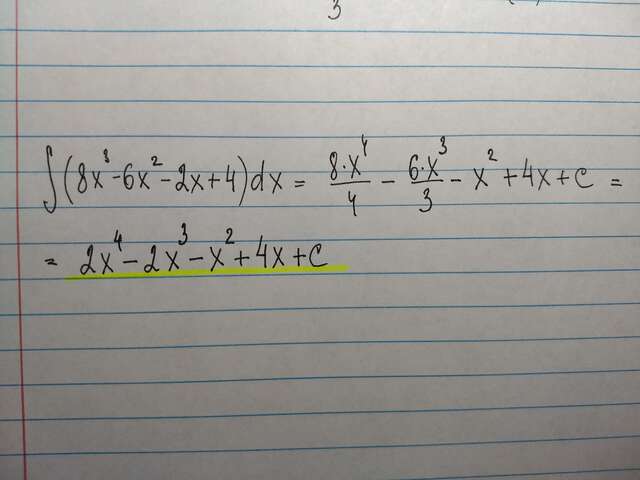 3
∫(8x³-6x²-2x+4)dx = 8·x⁴/4 - 6·x³/3 - x² + 4x + c =
= 2x⁴ - 2x³ - x² + 4x + c